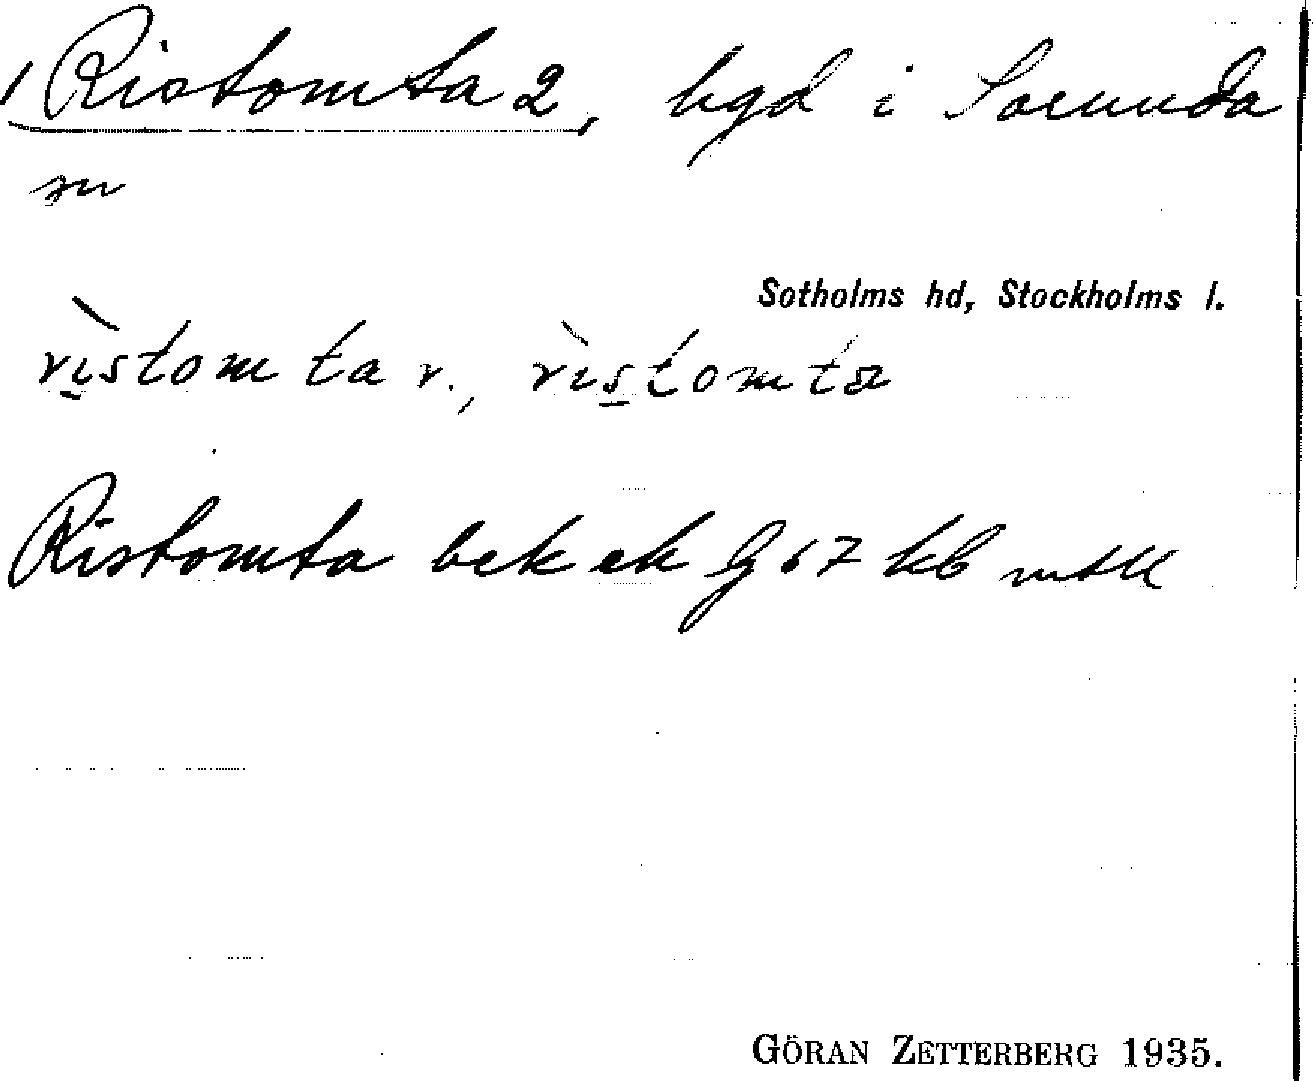 Ristomta 2, bgd i Sorunda
sn
Sotholms hd, Stockholms l.
rìstomta r., rìstomta
Ristomta bek ek G 67 kb
GÖRAN ZETTERBERG 1935.